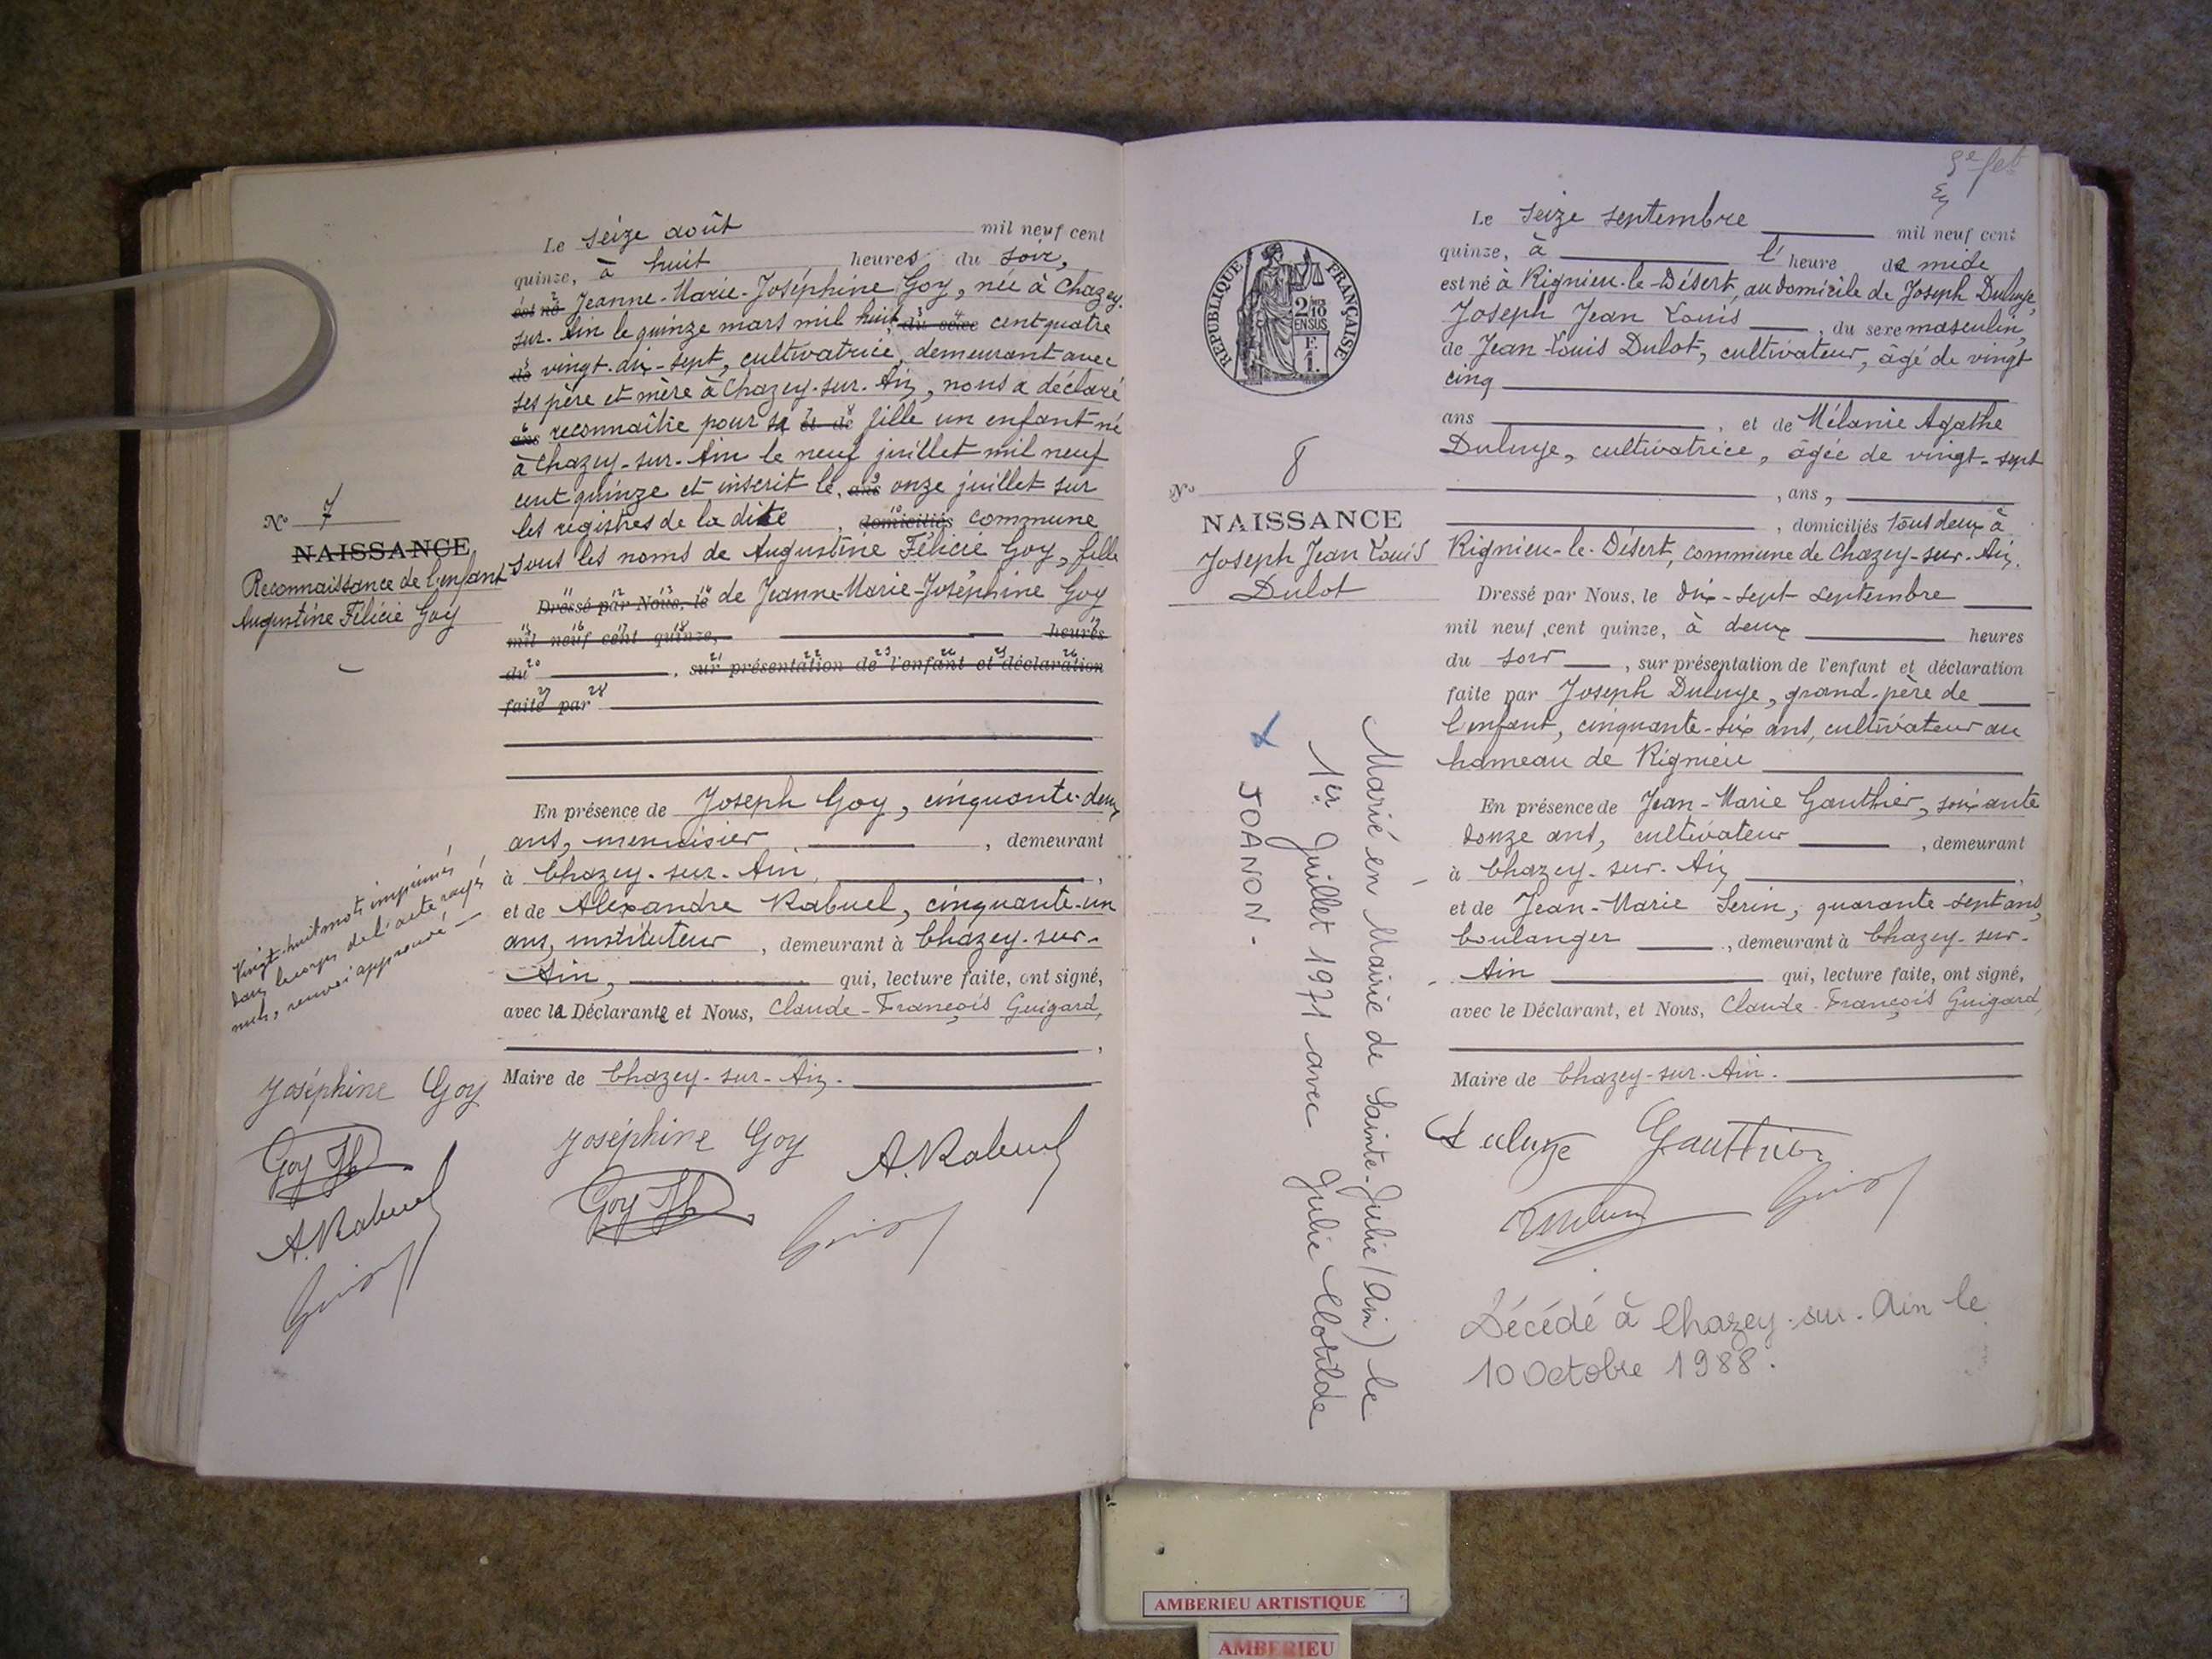 Le seize août mil neuf cent
quinze, à huit heures du soir,
est né Jeanne-Marie-Joséphine Goy, née à Chazey-
sur-Ain le quinze mars mil huit du sexe cent quatre
de vingt-dix-sept, cultivatrice, demeurant avec
ses père et mère à Chazey-sur-Ain, nous a déclaré
ans reconnaître pour sa et de fille un enfant né
à Chazey-sur-Ain le neuf juillet mil neuf
cent quinze et inscrit le, ans onze juillet sur
les registres de la dite, domiciliés commune
sous les noms de Augustine Félicie Goy, fille
Dressé par Nous, le de Jeanne-Marie-Joséphine Goy
mil neuf cent quinze, heures
du , sur présentation de l'enfant et déclaration
faite par
En présence de Joseph Goy, cinquante-deux
ans, menuisier, demeurant
à Chazey-sur-Ain,
et de Alexandre Rabuel, cinquante-un
ans, instituteur, demeurant à Chazey-sur-
Ain, qui, lecture faite, ont signé,
avec la Déclarante et Nous, Claude-François Guigard,
Maire de Chazey-sur-Ain.
Joséphine Goy A. Rabuel
Goy Jh
N° 7
NAISSANCE
Reconnaissance de l'enfant
Augustine Félicie Goy
Vingt-huit mots imprimés
dans le corps de l'acte rayés
nuls, renvoi approuvé
Joséphine Goy
Goy Jh
A. Rabuel
REPUBLIQUE FRANÇAISE
2/10
EN SUS
F.
1.
Le seize septembre mil neuf cent
quinze, à l' heure de midi
est né à Rignieu-le-Désert, au domicile de Joseph Duluye,
Joseph Jean Louis, du sexe masculin,
de Jean-Louis Dulot, cultivateur, âgé de vingt
cinq
ans, et de Mélanie Agathe
Duluye, cultivatrice, âgée de vingt-sept
, ans,
, domiciliés tous deux à
Rignieu-le-Désert, commune de Chazey-sur-Ain.
Dressé par Nous, le dix-sept septembre
mil neuf cent quinze, à deux heures
du soir, sur présentation de l'enfant et déclaration
faite par Joseph Duluye, grand-père de
l'enfant, cinquante-six ans, cultivateur au
hameau de Rignieu
En présence de Jean-Marie Gauthier, soixante
douze ans, cultivateur, demeurant
à Chazey-sur-Ain,
et de Jean-Marie Serin, quarante-sept ans,
boulanger, demeurant à Chazey-sur-
Ain qui, lecture faite, ont signé,
avec le Déclarant, et Nous, Claude-François Guigard,
Maire de Chazey-sur-Ain.
Duluye Gauthier
Décédé à Chazey-sur-Ain le
10 Octobre 1988.
N° 8
NAISSANCE
Joseph Jean Louis
Dulot
Marié en Mairie de Sainte-Julie (Ain) le
1er Juillet 1971 avec Julie Clotilde
JOANON.
AMBERIEU ARTISTIQUE
AMBERIEU